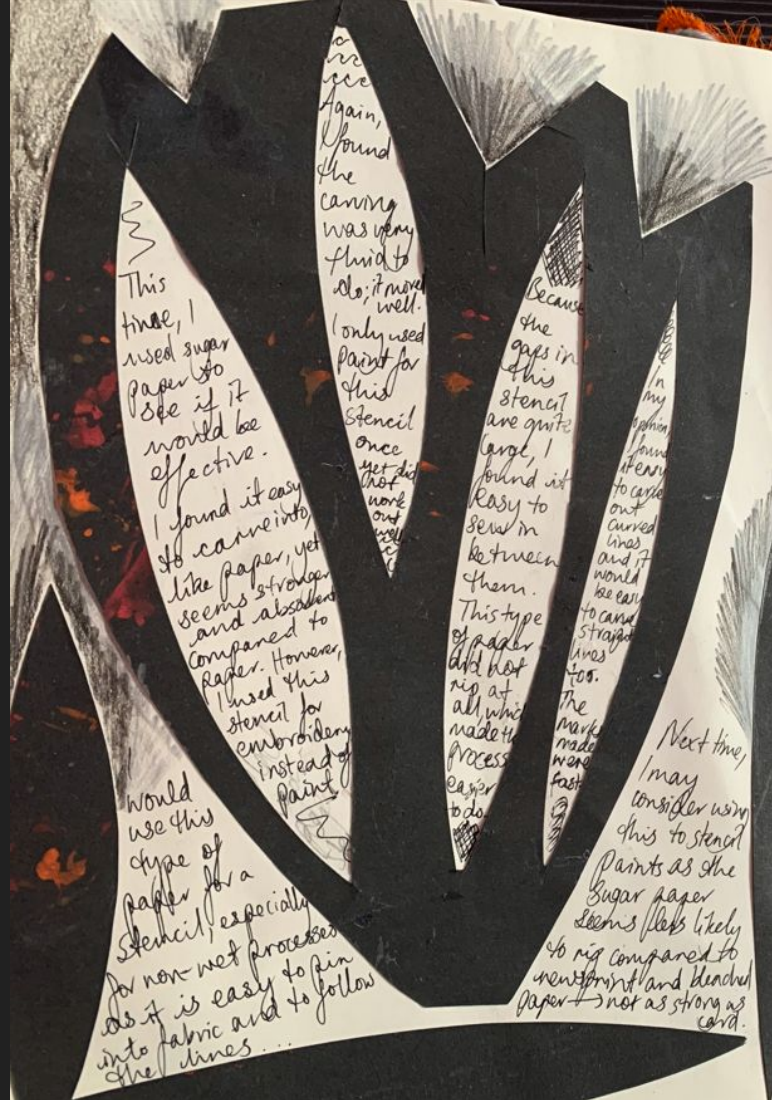 This
time, I
used sugar
paper to
see if it
would be
effective.
I found it easy
to carve into,
like paper, yet
seems stronger
and absorbent
compared to
paper. However,
I used this
stencil for
embroidery
instead of
paint
Again,
I found
the
carving
was very
fluid to
do; it moved
well.
I only used
paint for
this
stencil
once
yet did
not
work
out
well
Because
the
gaps in
this
stencil
are quite
large, I
found it
easy to
sew in
between
them.
This type
of paper
did not
rip at
all, which
made the
process
easier
to do.
In
my
opinion,
I found
it easy
to carve
out
curved
lines
and it
would
be easy
to carve
straight
lines
too.
The
marks
made
were
fast
would
use this
type of
paper for a
stencil, especially
for non-wet processes
as it is easy to pin
into fabric and to follow
the lines...
Next time,
I may
consider using
this to stencil
paints as the
sugar paper
seems less likely
to rip compared to
newsprint and bleached
paper → not as strong as
card.